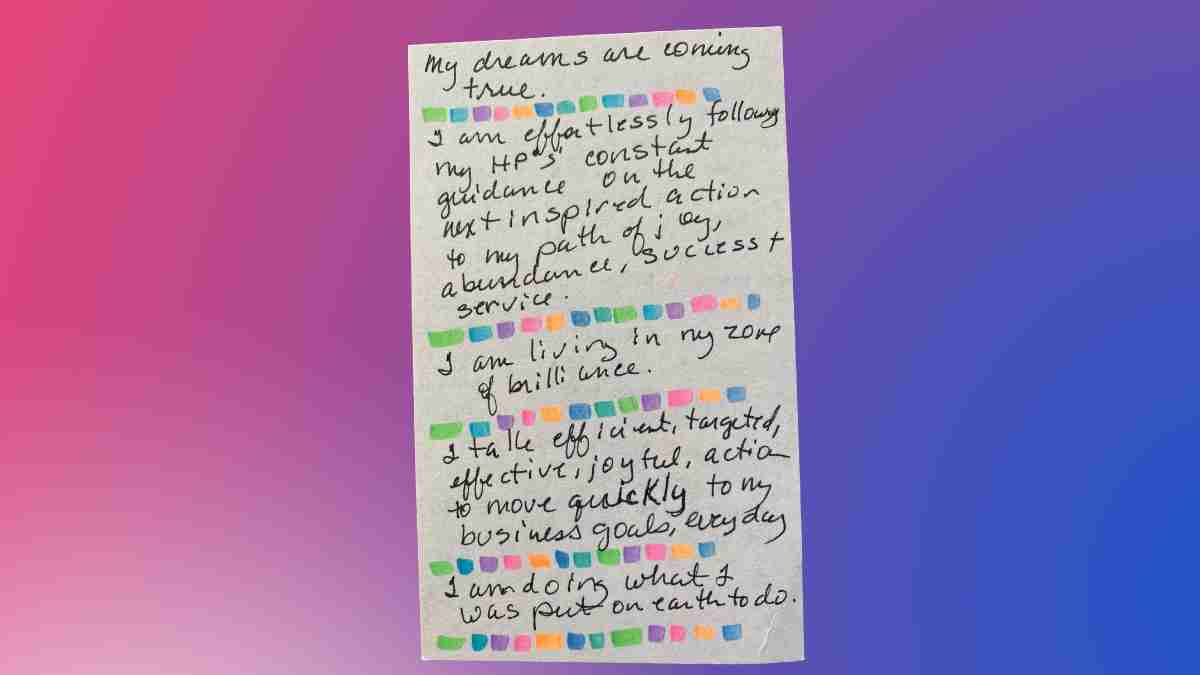 My dreams are coming
true.
I am effortlessly following
my HP's' constant
guidance on the
next inspired action
to my path of joy,
abundance, success +
service.
I am living in my zone
of brilliance.
I talk efficient, targeted,
effective, joyful, action
to move quickly to my
business goals, everyday
I am doing what I
was put on earth to do.